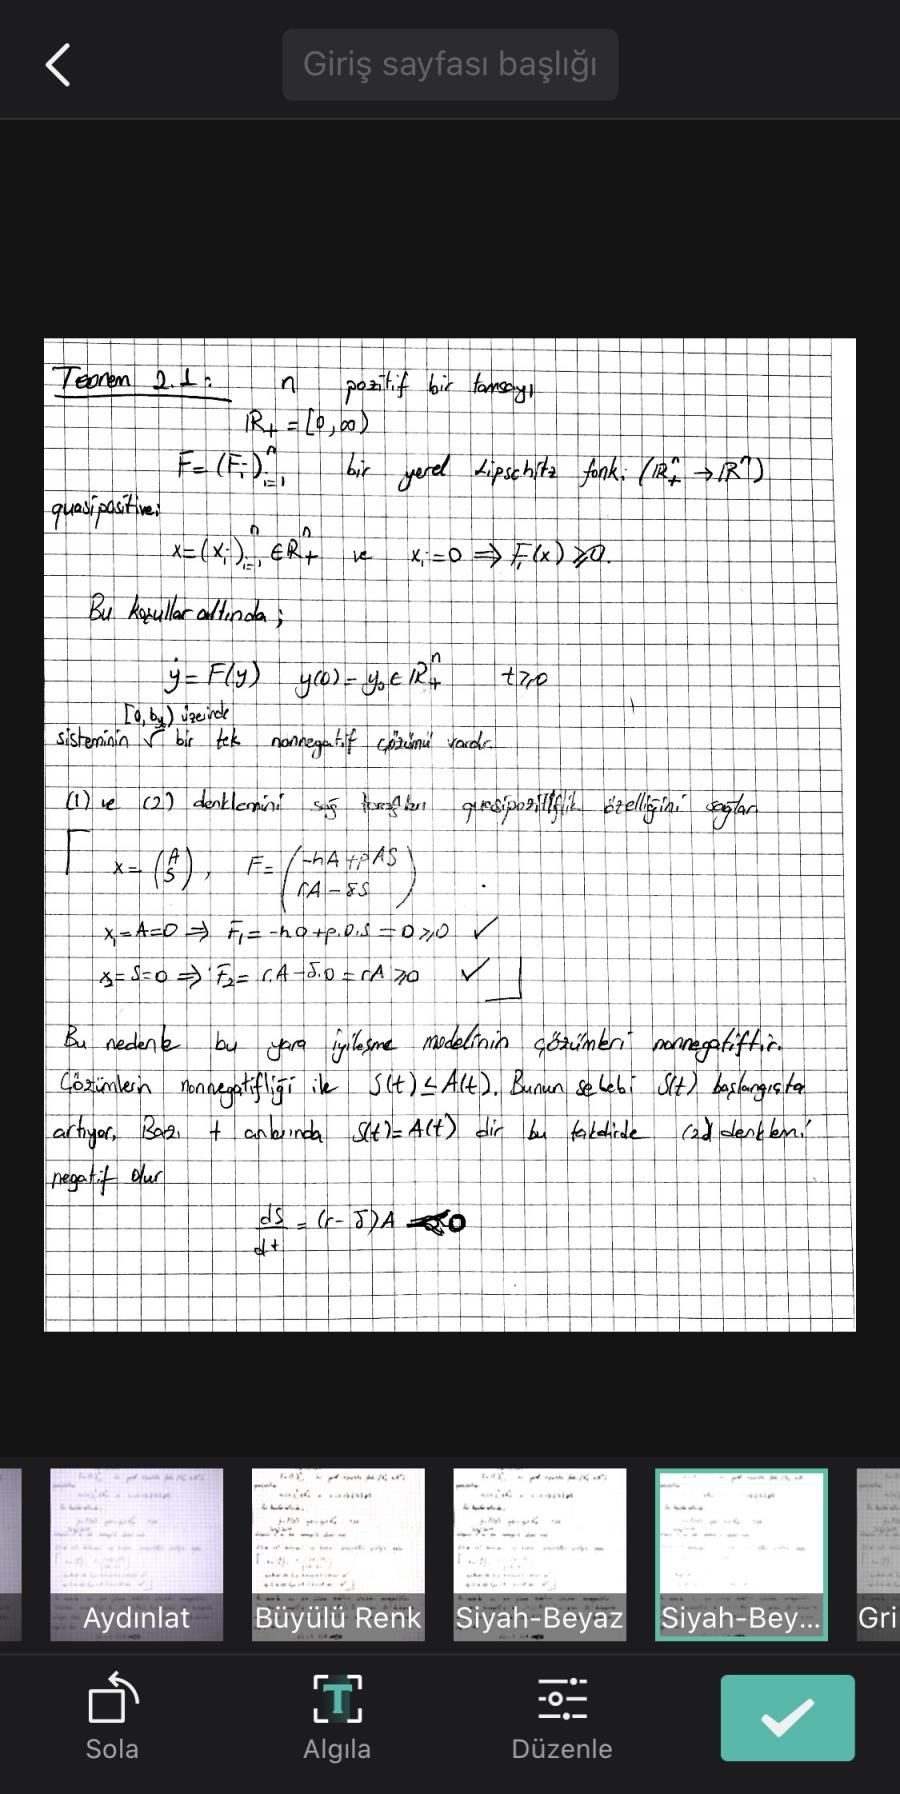 Giriş sayfası başlığı
Teorem 2.1: n pozitif bir tamsayı
ℝ₊ = [0,∞)
F = (Fᵢ)ⁿᵢ₌₁ bir yerel Lipschitz fonk. (ℝⁿ₊ → ℝⁿ)
quasipositive:
x = (xᵢ)ⁿᵢ₌₁ ∈ ℝⁿ₊ ve xᵢ=0 ⇒ Fᵢ(x) ≥ 0.
Bu koşullar altında;
ẏ = F(y) y(0) = y₀ ∈ ℝⁿ₊ t≥0
[0, b) üzeinde
sisteminin √ bir tek nonnegatif çözümü vardır.
(1) ve (2) denklemini sağ tarafları quasipozitiflik özelliğini sağlar
x = (A S), F = (-hA+pAS
rA-δS)
x₁=A=0 ⇒ F₁ = -h.0+p.0.S = 0≥0 ✓
x₂=S=0 ⇒ F₂ = r.A-δ.0 = rA ≥0 ✓
Bu nedenle bu yara iyileşme modelinin çözümleri nonnegatiftir.
Çözümlerin nonnegatifliği ile S(t) ≤ A(t). Bunun sebebi S(t) başlangıçta
artıyor. Bazı t anlarında S(t) = A(t) dir bu takdirde (2) denklemi
negatif olur
dS/dt = (r-δ)A <0
Aydınlat
Büyülü Renk
Siyah-Beyaz
Siyah-Bey...
Gri
Sola
T
Algıla
Düzenle